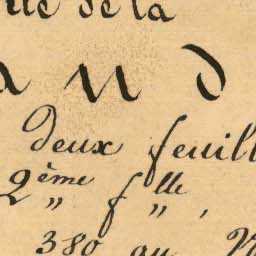 de la
a n d
deux feuill
2ème " flle " ,
380 au